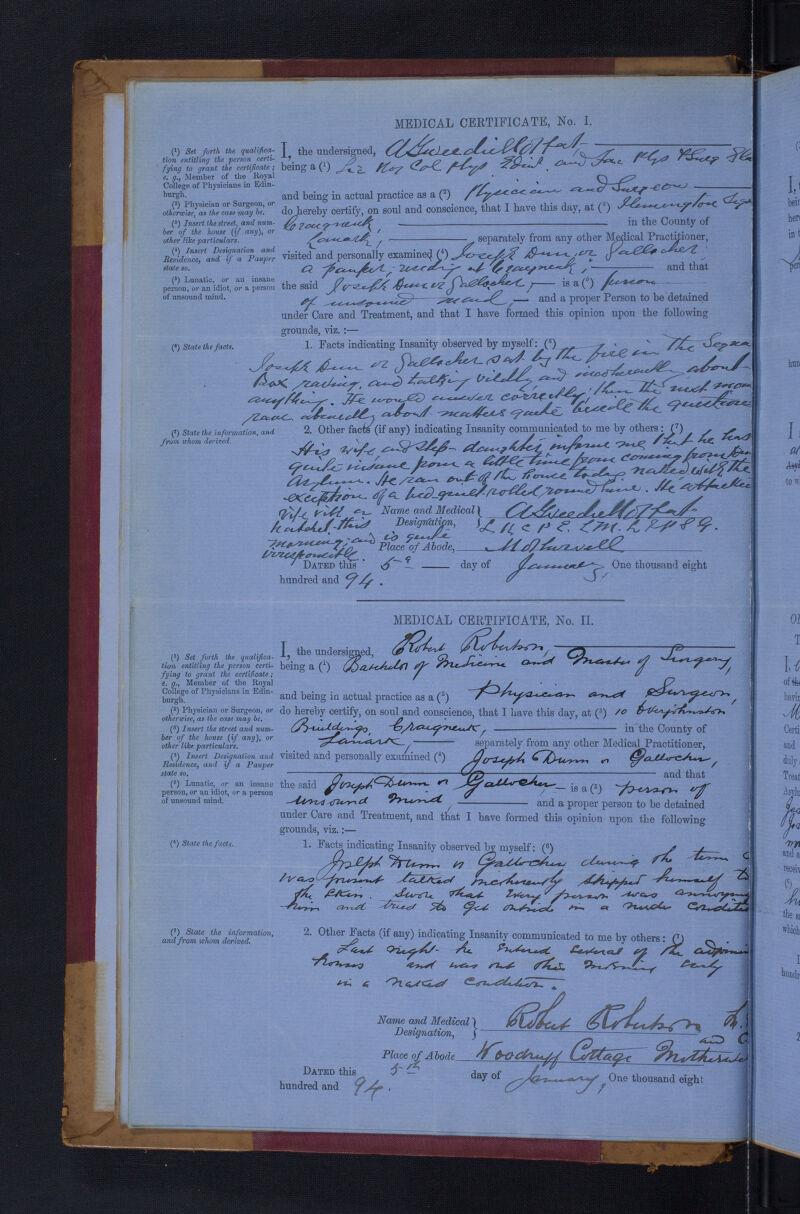 MEDICAL CERTIFICATE, No. I.
(¹) Set forth the qualifica-
tion entitling the person certi-
fying to grant the certificate;
e. g., Member of the Royal
College of Physicians in Edin-
burgh.
(²) Physician or Surgeon, or
otherwise, as the case may be.
(³) Insert the street, and num-
ber of the house (if any), or
other like particulars.
(⁴) Insert Designation and
Residence, and if a Pauper
state so.
(⁵) Lunatic, or an insane
person, or an idiot, or a person
of unsound mind.
I, the undersigned,
being a (¹) Lic Roy Col Phys Edin. and Fac Phys & Surg
and being in actual practice as a (²) Physician and Surgeon
do hereby certify, on soul and conscience, that I have this day, at (³) Flemington
Craigneuk, in the County of
Lanark, separately from any other Medical Practitioner,
visited and personally examined (⁴) Joseph Dunn or Gallocher
a pauper, residing at Craigneuk, and that
the said Joseph Dunn or Gallocher, is a (⁵) person
of unsound mind, and a proper Person to be detained
under Care and Treatment, and that I have formed this opinion upon the following
grounds, viz. :—
(⁶) State the facts.
1. Facts indicating Insanity observed by myself: (⁶)
Joseph Dunn or Gallocher sat by the fire in the
Box raving, and talking wildly and incoherently about
anything. He would answer correctly, then the next
rave absurdly about matters quite beside the question
(⁷) State the information, and
from whom derived.
2. Other facts (if any) indicating Insanity communicated to me by others: (⁷)
His wife and step-daughter inform me that he has
quite insane from a little time from coming from
Asylum. He ran out of the house today naked with the
exception of a bed quilt rolled round him. He attacked
wife with a
hatchet this
morning; and is quite
irresponsible.
Name and Medical
Designation,
L. R. C. P. E. L.M. L F P S G.
Place of Abode, Motherwell
DATED this 5th day of January, One thousand eight
hundred and 94.
MEDICAL CERTIFICATE, No. II.
(¹) Set forth the qualifica-
tion entitling the person certi-
fying to grant the certificate;
e. g., Member of the Royal
College of Physicians in Edin-
burgh.
(²) Physician or Surgeon, or
otherwise, as the case may be.
(³) Insert the street and num-
ber of the house (if any), or
other like particulars.
(⁴) Insert Designation and
Residence, and if a Pauper
state so.
(⁵) Lunatic, or an insane
person, or an idiot, or a person
of unsound mind.
I, the undersigned, Robert Robertson,
being a (¹) Batchelor of Medicine and Master of Surgery,
and being in actual practice as a (²) Physician and Surgeon,
do hereby certify, on soul and conscience, that I have this day, at (³) 10 Overjohnston
Buildings, Craigneuk, in the County of
Lanark, separately from any other Medical Practitioner,
visited and personally examined (⁴) Joseph Dunn or Gallocher,
and that
the said Joseph Dunn or Gallocher is a (⁵) person of
unsound mind, and a proper person to be detained
under Care and Treatment, and that I have formed this opinion upon the following
grounds, viz. :—
(⁶) State the facts.
1. Facts indicating Insanity observed by myself: (⁶)
Joseph Dunn or Gallocher during the time
was present talked incoherently stripped himself to
the skin. Swore that every person was annoying
him and tried to get outside in a nude condition
(⁷) State the information,
and from whom derived.
2. Other Facts (if any) indicating Insanity communicated to me by others: (⁷)
Last night he entered several of the
houses and was out this morning early
in a naked condition.
Name and Medical
Designation,
Robert Robertson
and
Place of Abode Woodruff Cottage Motherwell
DATED this 5th day of January, One thousand eight
hundred and 94.